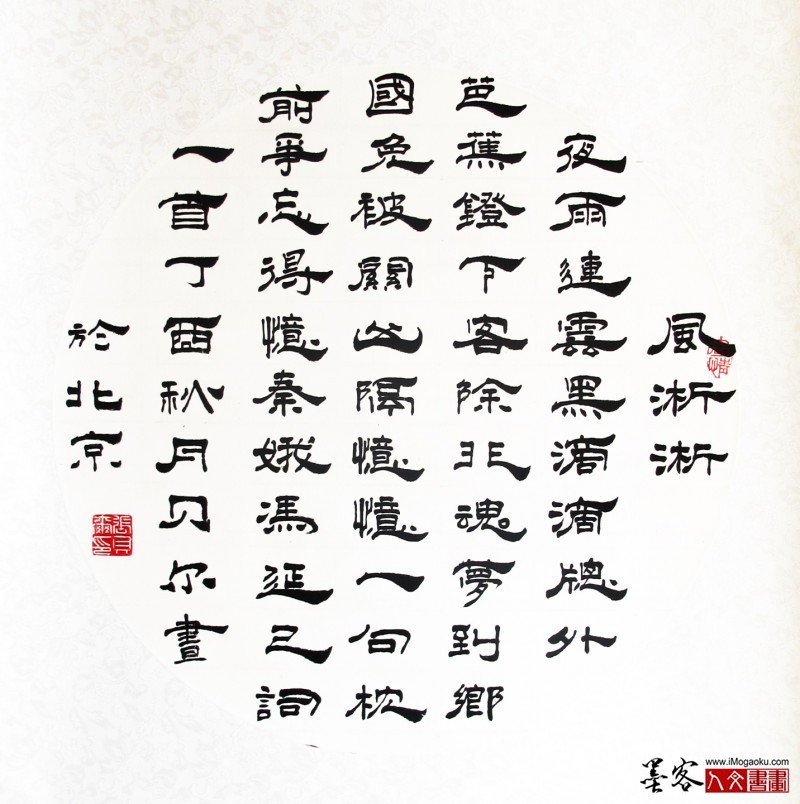 風淅淅
夜雨連雲黑滴滴牕外
芭蕉鐙下客除非魂夢到鄉
國免被關山隔憶憶一句枕
前爭忘得憶秦娥馮延巳詞
一首丁酉秋月貝尔書
於北京
墨客
www.iMogaoku.com
人文書畫